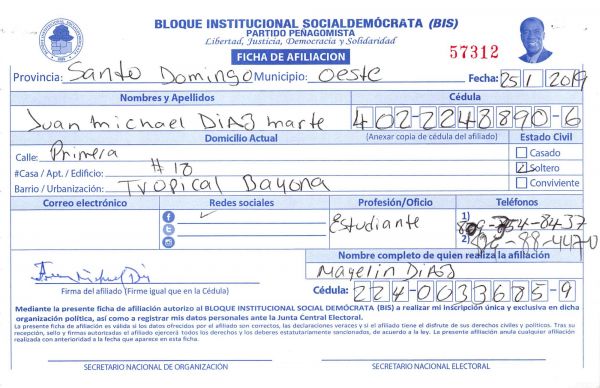 BLOQUE INSTITUCIONAL SOCIALDEMÓCRATA (BIS)
PARTIDO PEÑAGOMISTA
Libertad, Justicia, Democracia y Solidaridad
FICHA DE AFILIACION
57312
Provincia: Santo Domingo Municipio: Oeste Fecha: 25/1/2019
Nombres y Apellidos Cédula
Juan michael DIAZ marte 402-2248890-6
Domicilio Actual (Anexar copia de cédula del afiliado) Estado Civil
Calle: Primera Casado
#Casa / Apt. / Edificio: #18 Soltero
Barrio / Urbanización: Tropical Bayona Conviviente
Correo electrónico Redes sociales Profesión/Oficio Teléfonos
Estudiante 1)
2)
Nombre completo de quien realiza la afiliación
Mayelin DIAZ
Firma del afiliado (Firme igual que en la Cédula) Cédula: 224-0033685-9
Mediante la presente ficha de afiliación autorizo al BLOQUE INSTITUCIONAL SOCIAL DEMÓCRATA (BIS) a realizar mi inscripción única y exclusiva en dicha
organización política, así como a registrar mis datos personales ante la Junta Central Electoral.
La presente ficha de afiliación es válida si los datos ofrecidos por el afiliado son correctos, las declaraciones veraces y si el afiliado tiene el disfrute de sus derechos civiles y políticos. Tras su
recepción, sello y firmas autorizadas el afiliado ejercerá todos los derechos y los deberes estatutariamente sancionados, de acuerdo a la ley. La presente afiliación anula cualquier afiliación
realizada con anterioridad a la fecha que aparece en esta ficha.
SECRETARIO NACIONAL DE ORGANIZACIÓN SECRETARIO NACIONAL ELECTORAL